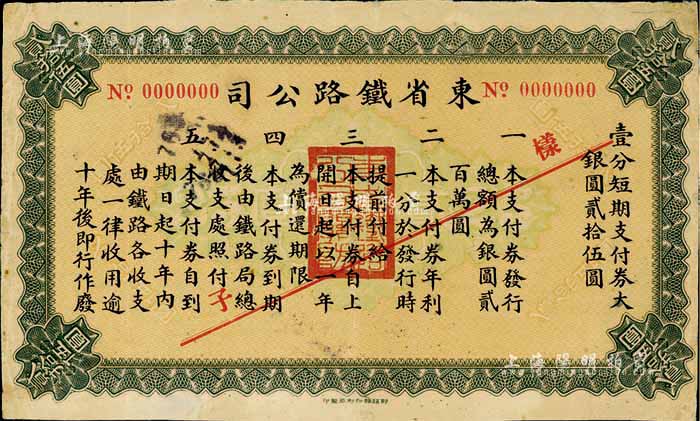 東省鐵路公司
№ 0000000
№ 0000000
壹分短期支付券大
銀圓貳拾伍圓
一 本支付券發行
總額為銀圓貳
百萬圓
二 本支付券年利
一分於發行時
提前付給
三 本支付券自上
開日起以一年
為償還期限
四 本支付券到期
後由鐵路局總
收支處照付
五 本支付券自到
期日起十年內
由鐵路各收支
處一律收用逾
十年後即行作廢
樣
子
貳拾伍圓
貳拾伍圓
貳拾伍圓
貳拾伍圓
上海陽明拍賣
上海陽明拍賣
上海陽明拍賣